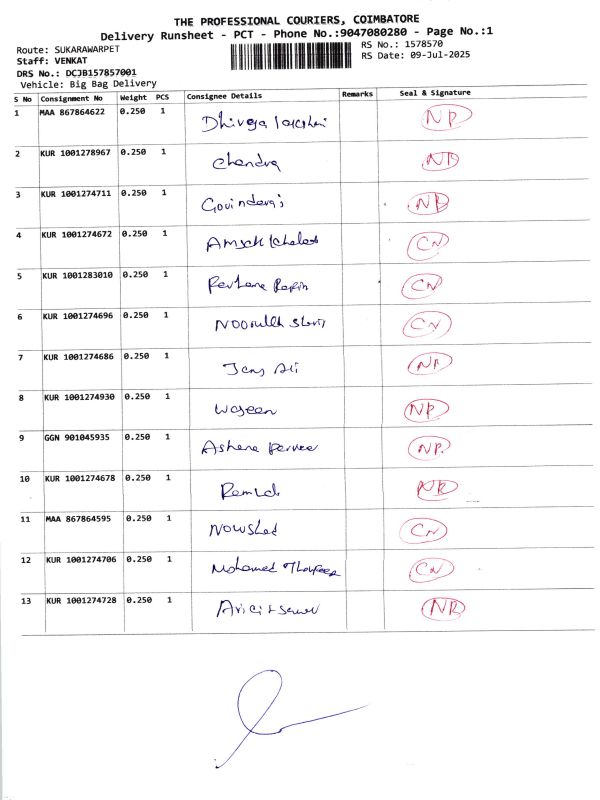 THE PROFESSIONAL COURIERS, COIMBATORE
Delivery Runsheet - PCT - Phone No.:9047080280 - Page No.:1
Route: SUKARAWARPET
RS No.: 1578570
Staff: VENKAT
RS Date: 09-Jul-2025
DRS No.: DCJB157857001
Vehicle: Big Bag Delivery
S No Consignment No Weight PCS Consignee Details Remarks Seal & Signature
1 MAA 867864622 0.250 1 NP
2 KUR 1001278967 0.250 1 Chandra NP
3 KUR 1001274711 0.250 1 Govindaraj NP
4 KUR 1001274672 0.250 1 CN
5 KUR 1001283010 0.250 1 CN
6 KUR 1001274696 0.250 1 CN
7 KUR 1001274686 0.250 1 Ali NP
8 KUR 1001274930 0.250 1 Waseen NP
9 GGN 901045935 0.250 1 NP
10 KUR 1001274678 0.250 1 NP
11 MAA 867864595 0.250 1 Nowshad CN
12 KUR 1001274706 0.250 1 Mohamed CN
13 KUR 1001274728 0.250 1 NP